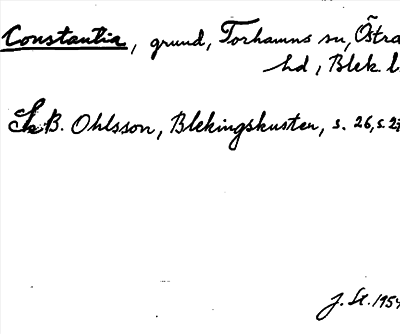 Constantia, grund, Torhamns sn, Östra
hd, Blek l.
B. Ohlsson, Blekingskusten, s. 26, s. 27
J. St. 1954